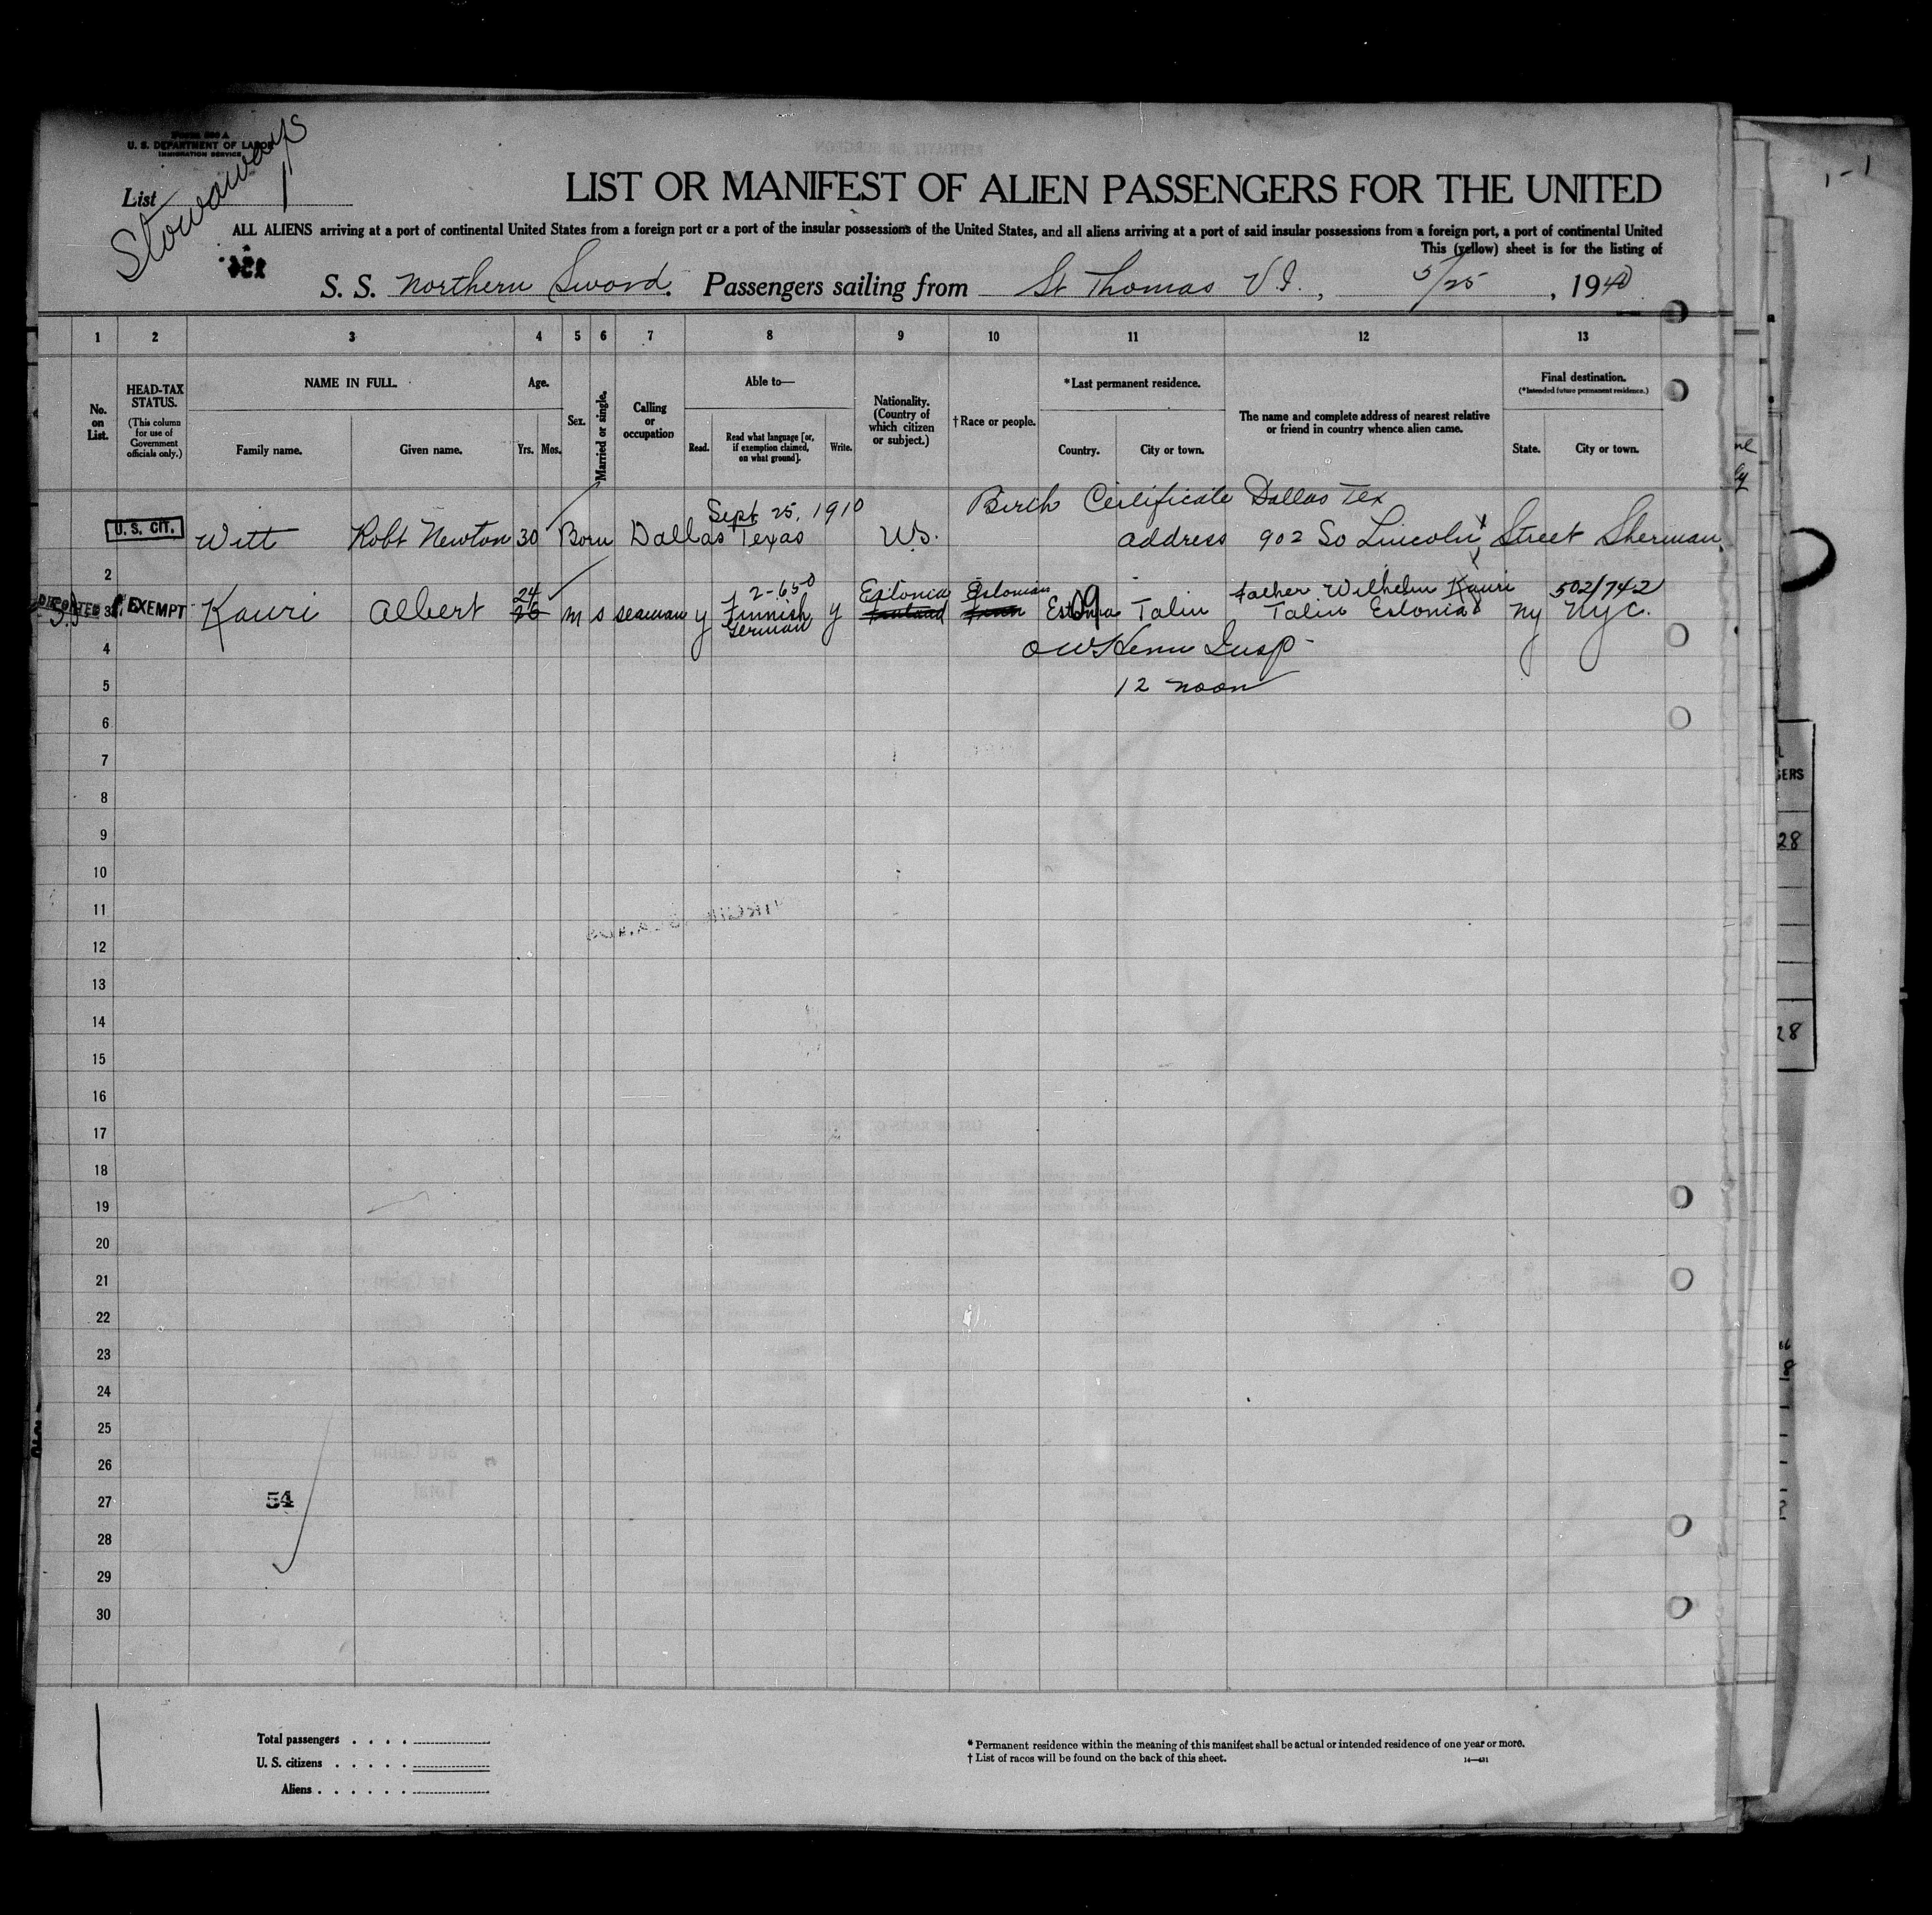 Form 500 A
U. S. DEPARTMENT OF LABOR
IMMIGRATION SERVICE
Stowaways
List
LIST OR MANIFEST OF ALIEN PASSENGERS FOR THE UNITED
ALL ALIENS arriving at a port of continental United States from a foreign port or a port of the insular possessions of the United States, and all aliens arriving at a port of said insular possessions from a foreign port, a port of continental United
This (yellow) sheet is for the listing of
S. S. Northern Sword. Passengers sailing from St Thomas V.I., 5/25, 1940
1 2 3 4 5 6 7 8 9 10 11 12 13
No. on List.
HEAD-TAX STATUS.
(This column for use of Government officials only.)
NAME IN FULL.
Family name. Given name.
Age.
Yrs. Mos.
Sex.
Married or single.
Calling or occupation
Able to—
Read. Read what language [or, if exemption claimed, on what ground]. Write.
Nationality. (Country of which citizen or subject.)
†Race or people.
*Last permanent residence.
Country. City or town.
The name and complete address of nearest relative or friend in country whence alien came.
Final destination.
(*Intended future permanent residence.)
State. City or town.
Sept 25, 1910 Birth Certificate Dallas Tex
U. S. CIT. Witt Robt Newton 30 Born Dallas Texas U.S. address 902 So Lincoln Street Sherman
2
24 2-650 Estonia Estonian father Wilhelm Kauri 502/742
3 EXEMPT Kauri Albert m s seaman y Finnish y Estonia 09 Talin Talin Estonia NY NYC.
German
4 Insp
5 12 noon
6
7
8
9
10
11
12
13
14
15
16
17
18
19
20
21
22
23
24
25
26
27 54
28
29
30
Total passengers . . . .
U. S. citizens . . . . .
Aliens . . . . . .
* Permanent residence within the meaning of this manifest shall be actual or intended residence of one year or more.
† List of races will be found on the back of this sheet.
14—431
GERS
28
28